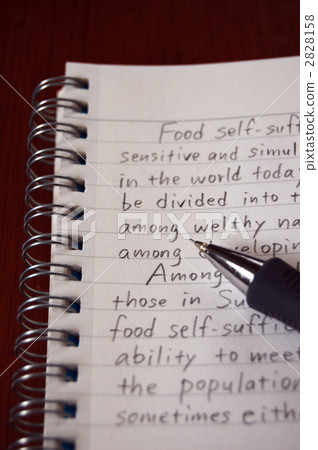 Food self-suff
sensitive and simul
in the world toda
be divided into t
among welthy na
among developin
Among
those in Su
food self-suffic
ability to meet
the population
sometimes eith
PIXTA
pixta.jp - 2828158